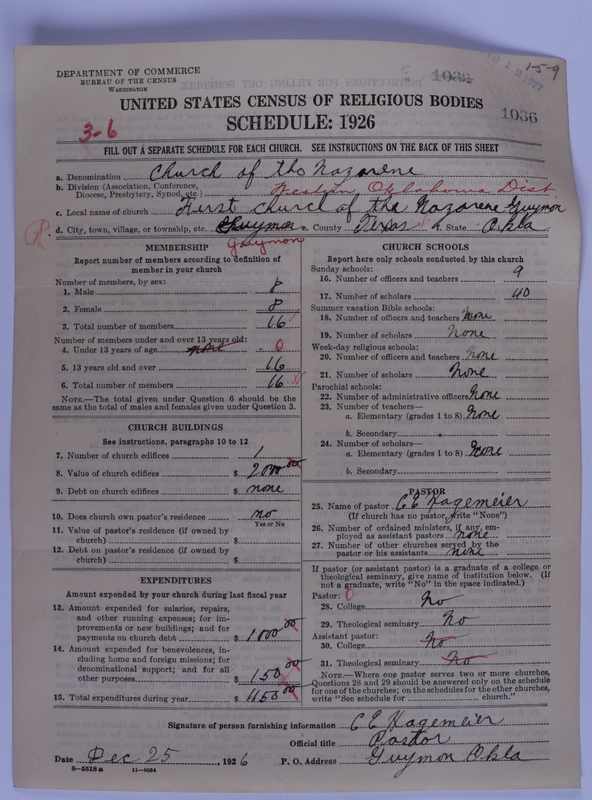 DEPARTMENT OF COMMERCE
BUREAU OF THE CENSUS
WASHINGTON
1036
1-5-9
1036
UNITED STATES CENSUS OF RELIGIOUS BODIES
3-6
SCHEDULE: 1926
FILL OUT A SEPARATE SCHEDULE FOR EACH CHURCH. SEE INSTRUCTIONS ON THE BACK OF THIS SHEET
a. Denomination Church of the Nazarene
b. Division (Association, Conference, Diocese, Presbytery, Synod, etc.) Western Oklahoma Dist
c. Local name of church First Church of the Nazarene Guymon
d. City, town, village, or township, etc. Guymon e. County Texas f. State Okla
Guymon
MEMBERSHIP
Report number of members according to definition of
member in your church
Number of members, by sex:
1. Male 8
2. Female 8
3. Total number of members 16
Number of members under and over 13 years old:
4. Under 13 years of age none 0
5. 13 years old and over 16
6. Total number of members 16
NOTE.—The total given under Question 6 should be the
same as the total of males and females given under Question 3.
CHURCH BUILDINGS
See instructions, paragraphs 10 to 12
7. Number of church edifices 1
8. Value of church edifices $ 2000 00
9. Debt on church edifices $ none
10. Does church own pastor's residence no
Yes or No
11. Value of pastor's residence (if owned by
church) $
12. Debt on pastor's residence (if owned by
church) $
EXPENDITURES
Amount expended by your church during last fiscal year
13. Amount expended for salaries, repairs,
and other running expenses; for im-
provements or new buildings; and for
payments on church debt $ 1000 00
14. Amount expended for benevolences, in-
cluding home and foreign missions; for
denominational support; and for all
other purposes $ 150 00
15. Total expenditures during year $ 450 00
CHURCH SCHOOLS
Report here only schools conducted by this church
Sunday schools:
16. Number of officers and teachers 9
17. Number of scholars 40
Summer vacation Bible schools:
18. Number of officers and teachers none
19. Number of scholars None
Week-day religious schools:
20. Number of officers and teachers None
21. Number of scholars None
Parochial schools:
22. Number of administrative officers None
23. Number of teachers—
a. Elementary (grades 1 to 8) None
b. Secondary
24. Number of scholars—
a. Elementary (grades 1 to 8) None
b. Secondary
PASTOR
25. Name of pastor C E Hagemeier
(If church has no pastor, write "None")
26. Number of ordained ministers, if any, em-
ployed as assistant pastors none
27. Number of other churches served by the
pastor or his assistants none
If pastor (or assistant pastor) is a graduate of a college or
theological seminary, give name of institution below. (If
not a graduate, write "No" in the space indicated.)
Pastor: 0
28. College No
29. Theological seminary No
Assistant pastor:
30. College No
31. Theological seminary No
NOTE.—Where one pastor serves two or more churches,
Questions 28 and 29 should be answered only on the schedule
for one of the churches; on the schedules for the other churches,
write "See schedule for church."
Signature of person furnishing information C E Hagemeier
Official title Pastor
Date Dec 25, 1926 P. O. Address Guymon Okla
8-5518a 11-9054